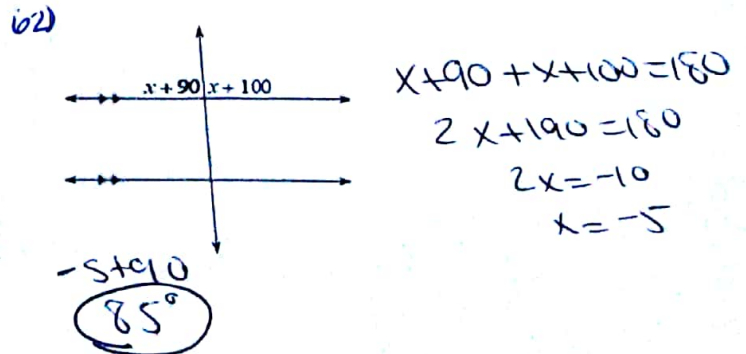 62)
x + 90 x + 100
x+90+x+100=180
2x+190=180
2x=-10
x=-5
-5+90
85°